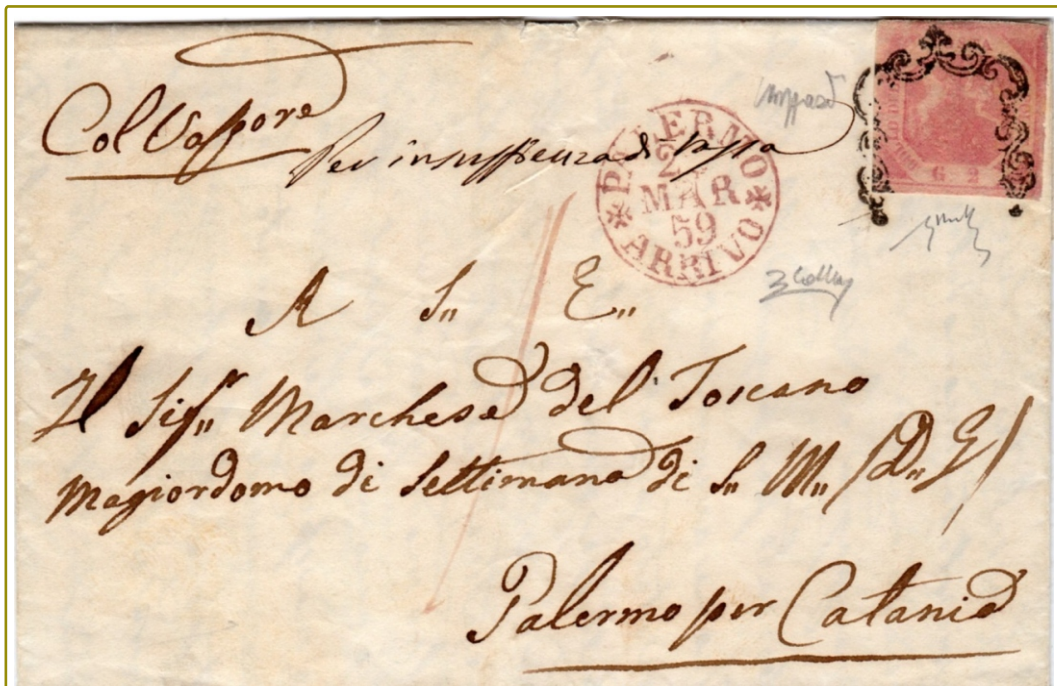 Col Vapore
Per insufficienza di tassa
PALERMO
2
MAR
59
ARRIVO
G 2
A S,, E,,
Il Sig,,r Marchese del Toscano
Magiordomo di Settimana di S,, M,, /D,, G/
Palermo per Catania